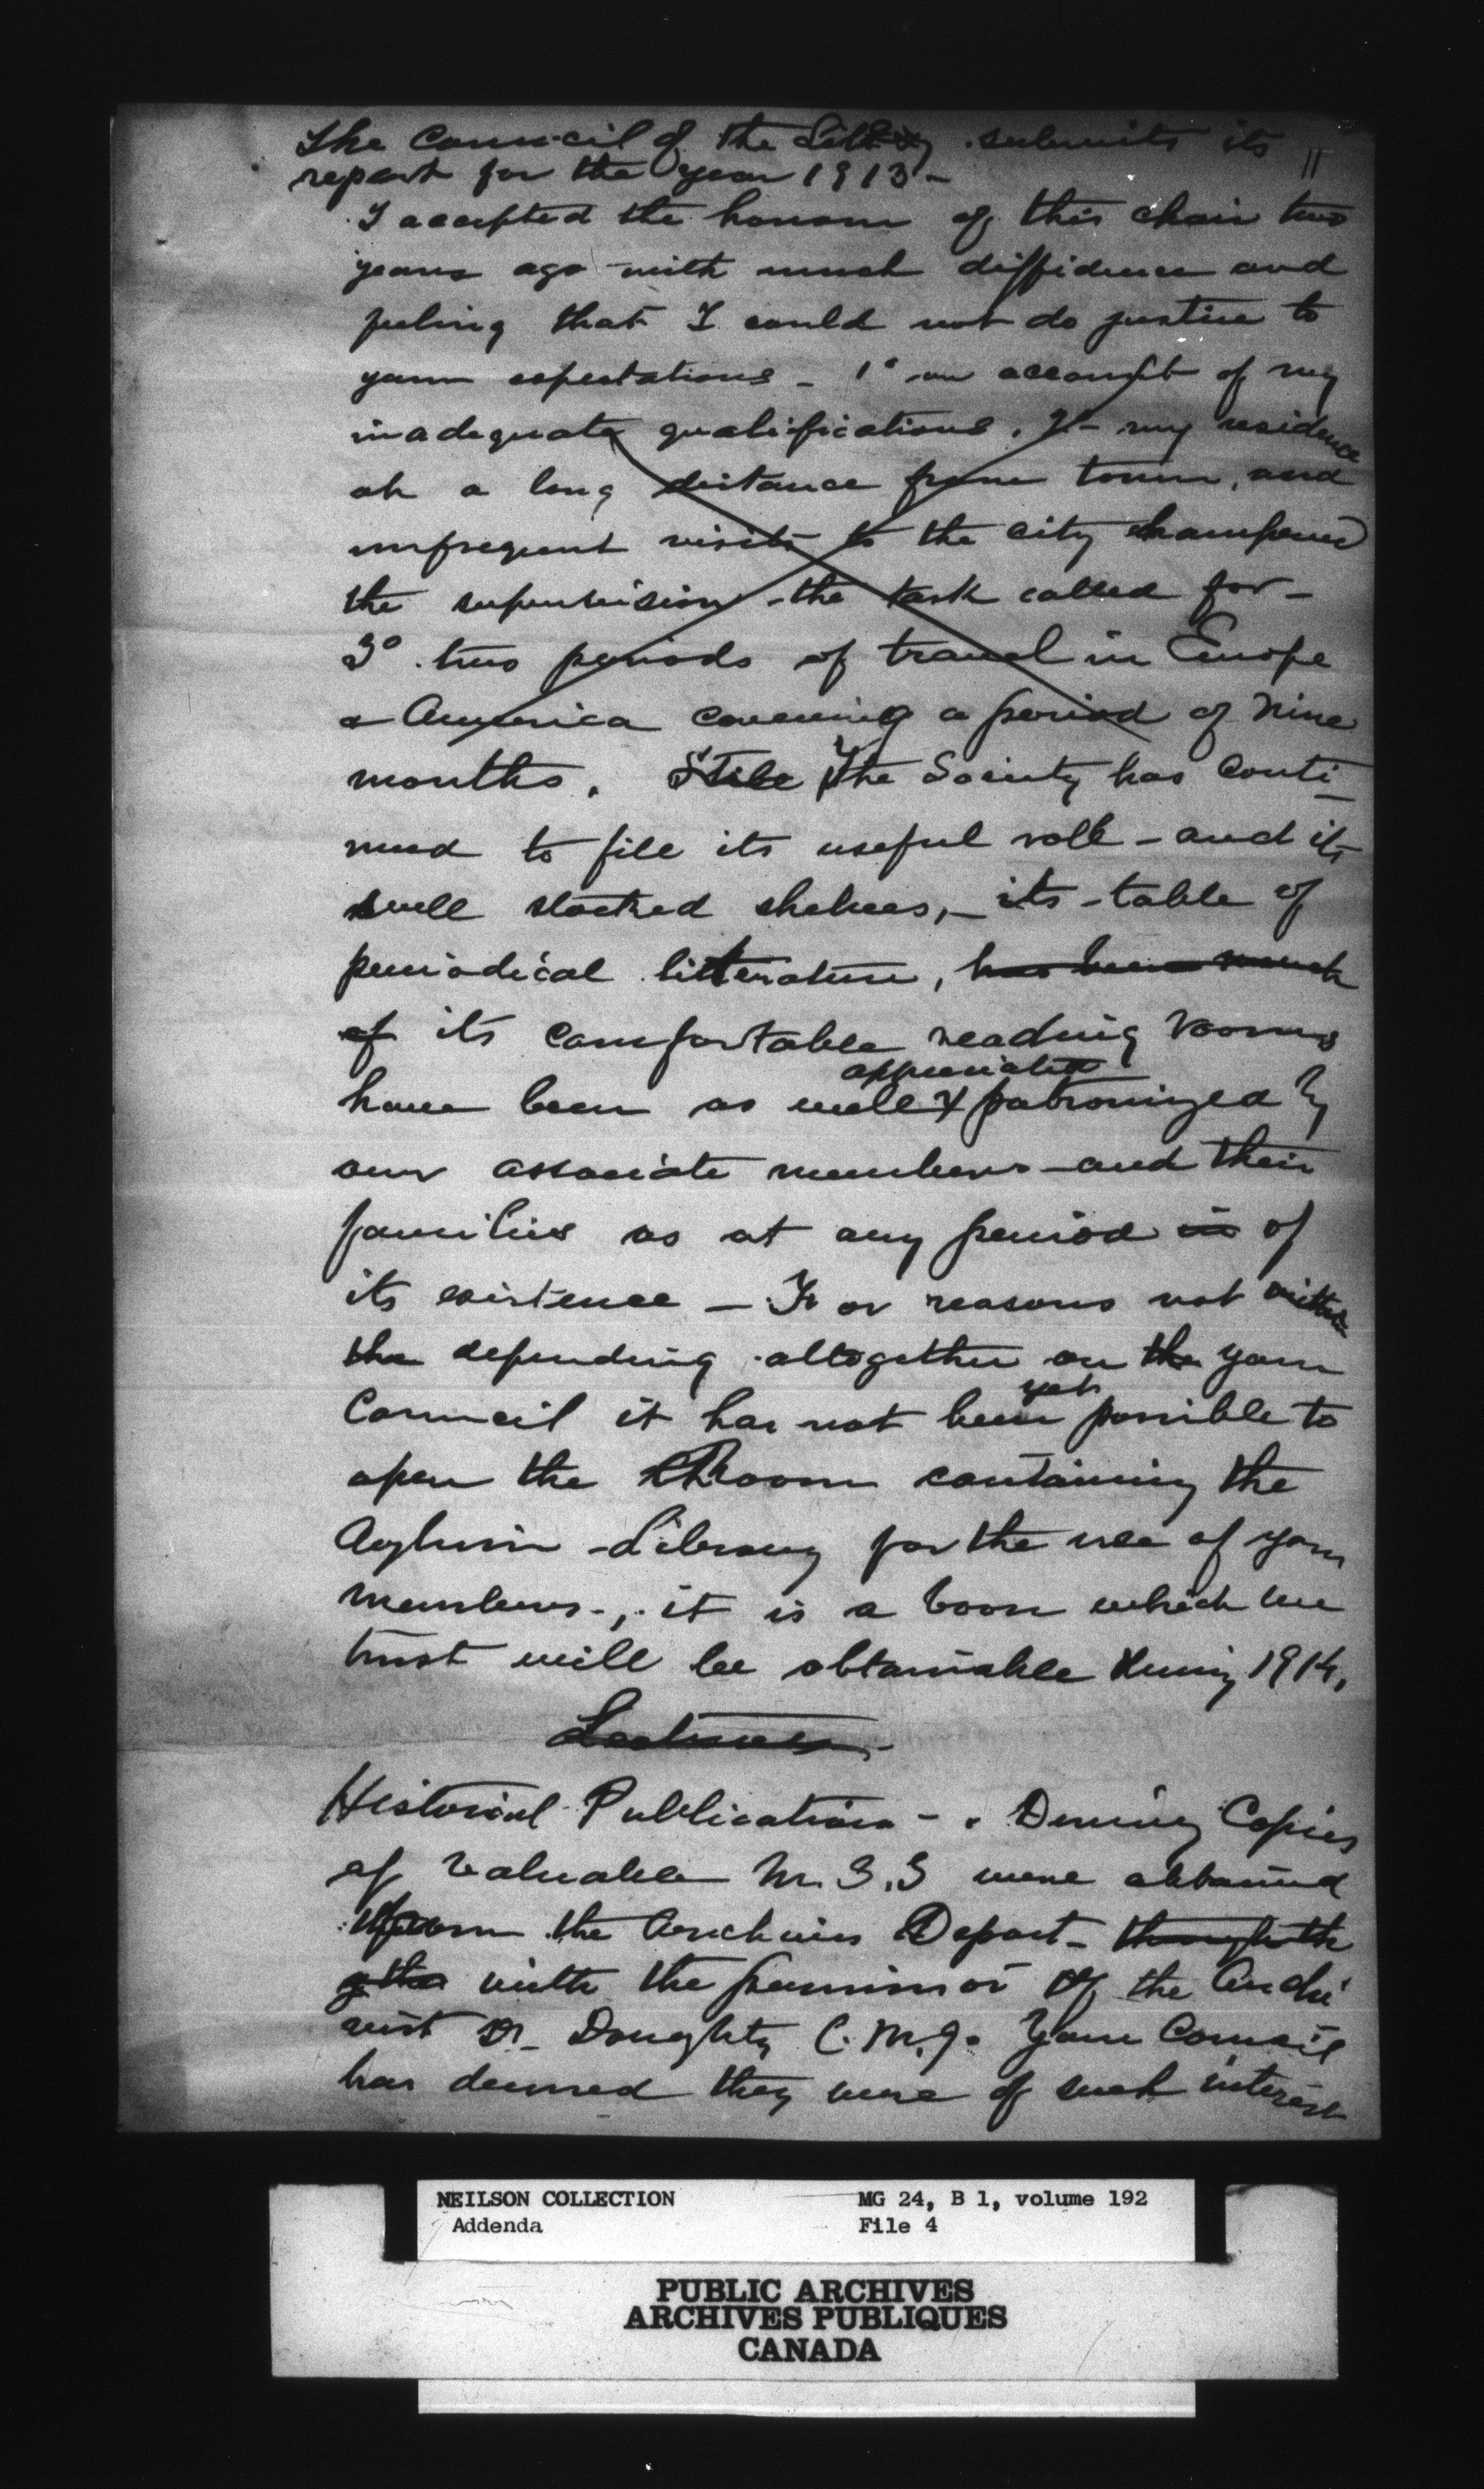 The Council of the submits its
report for the year 1913 -
11
I accepted the honour of this chair two
years ago with much diffidence and
feeling that I could not do justice to
your expectations - 1° on account of my
inadequate qualifications. 2° my residence
at a long distance from town, and
unfrequent visits to the city hampered
the supervision the task called for -
3° two periods of travel in Europe
& America covering a period of nine
months. Still The Society has conti-
nued to fill its useful roll - and its
well stocked shelves, - its table of
periodical litterature, has been much
of its comfortable reading rooms
appreciated
have been as well & patronized by
our associate members and their
families as at any period in of
its existence - For reasons not
the depending altogether on the your
yet
Council it has not been possible to
open the Room containing the
Aylwin Library for the use of your
members -, it is a boon which we
trust will be obtainable during 1914.
Lectures -
Historical Publications - . During Copies
of valuable M.S.S were obtained
from the Archives Depart - through the
with the permission of the Archi
vist Dr Doughty C.M.G. Your Council
has deemed they were of such interest
NEILSON COLLECTION MG 24, B 1, volume 192
Addenda File 4
PUBLIC ARCHIVES
ARCHIVES PUBLIQUES
CANADA